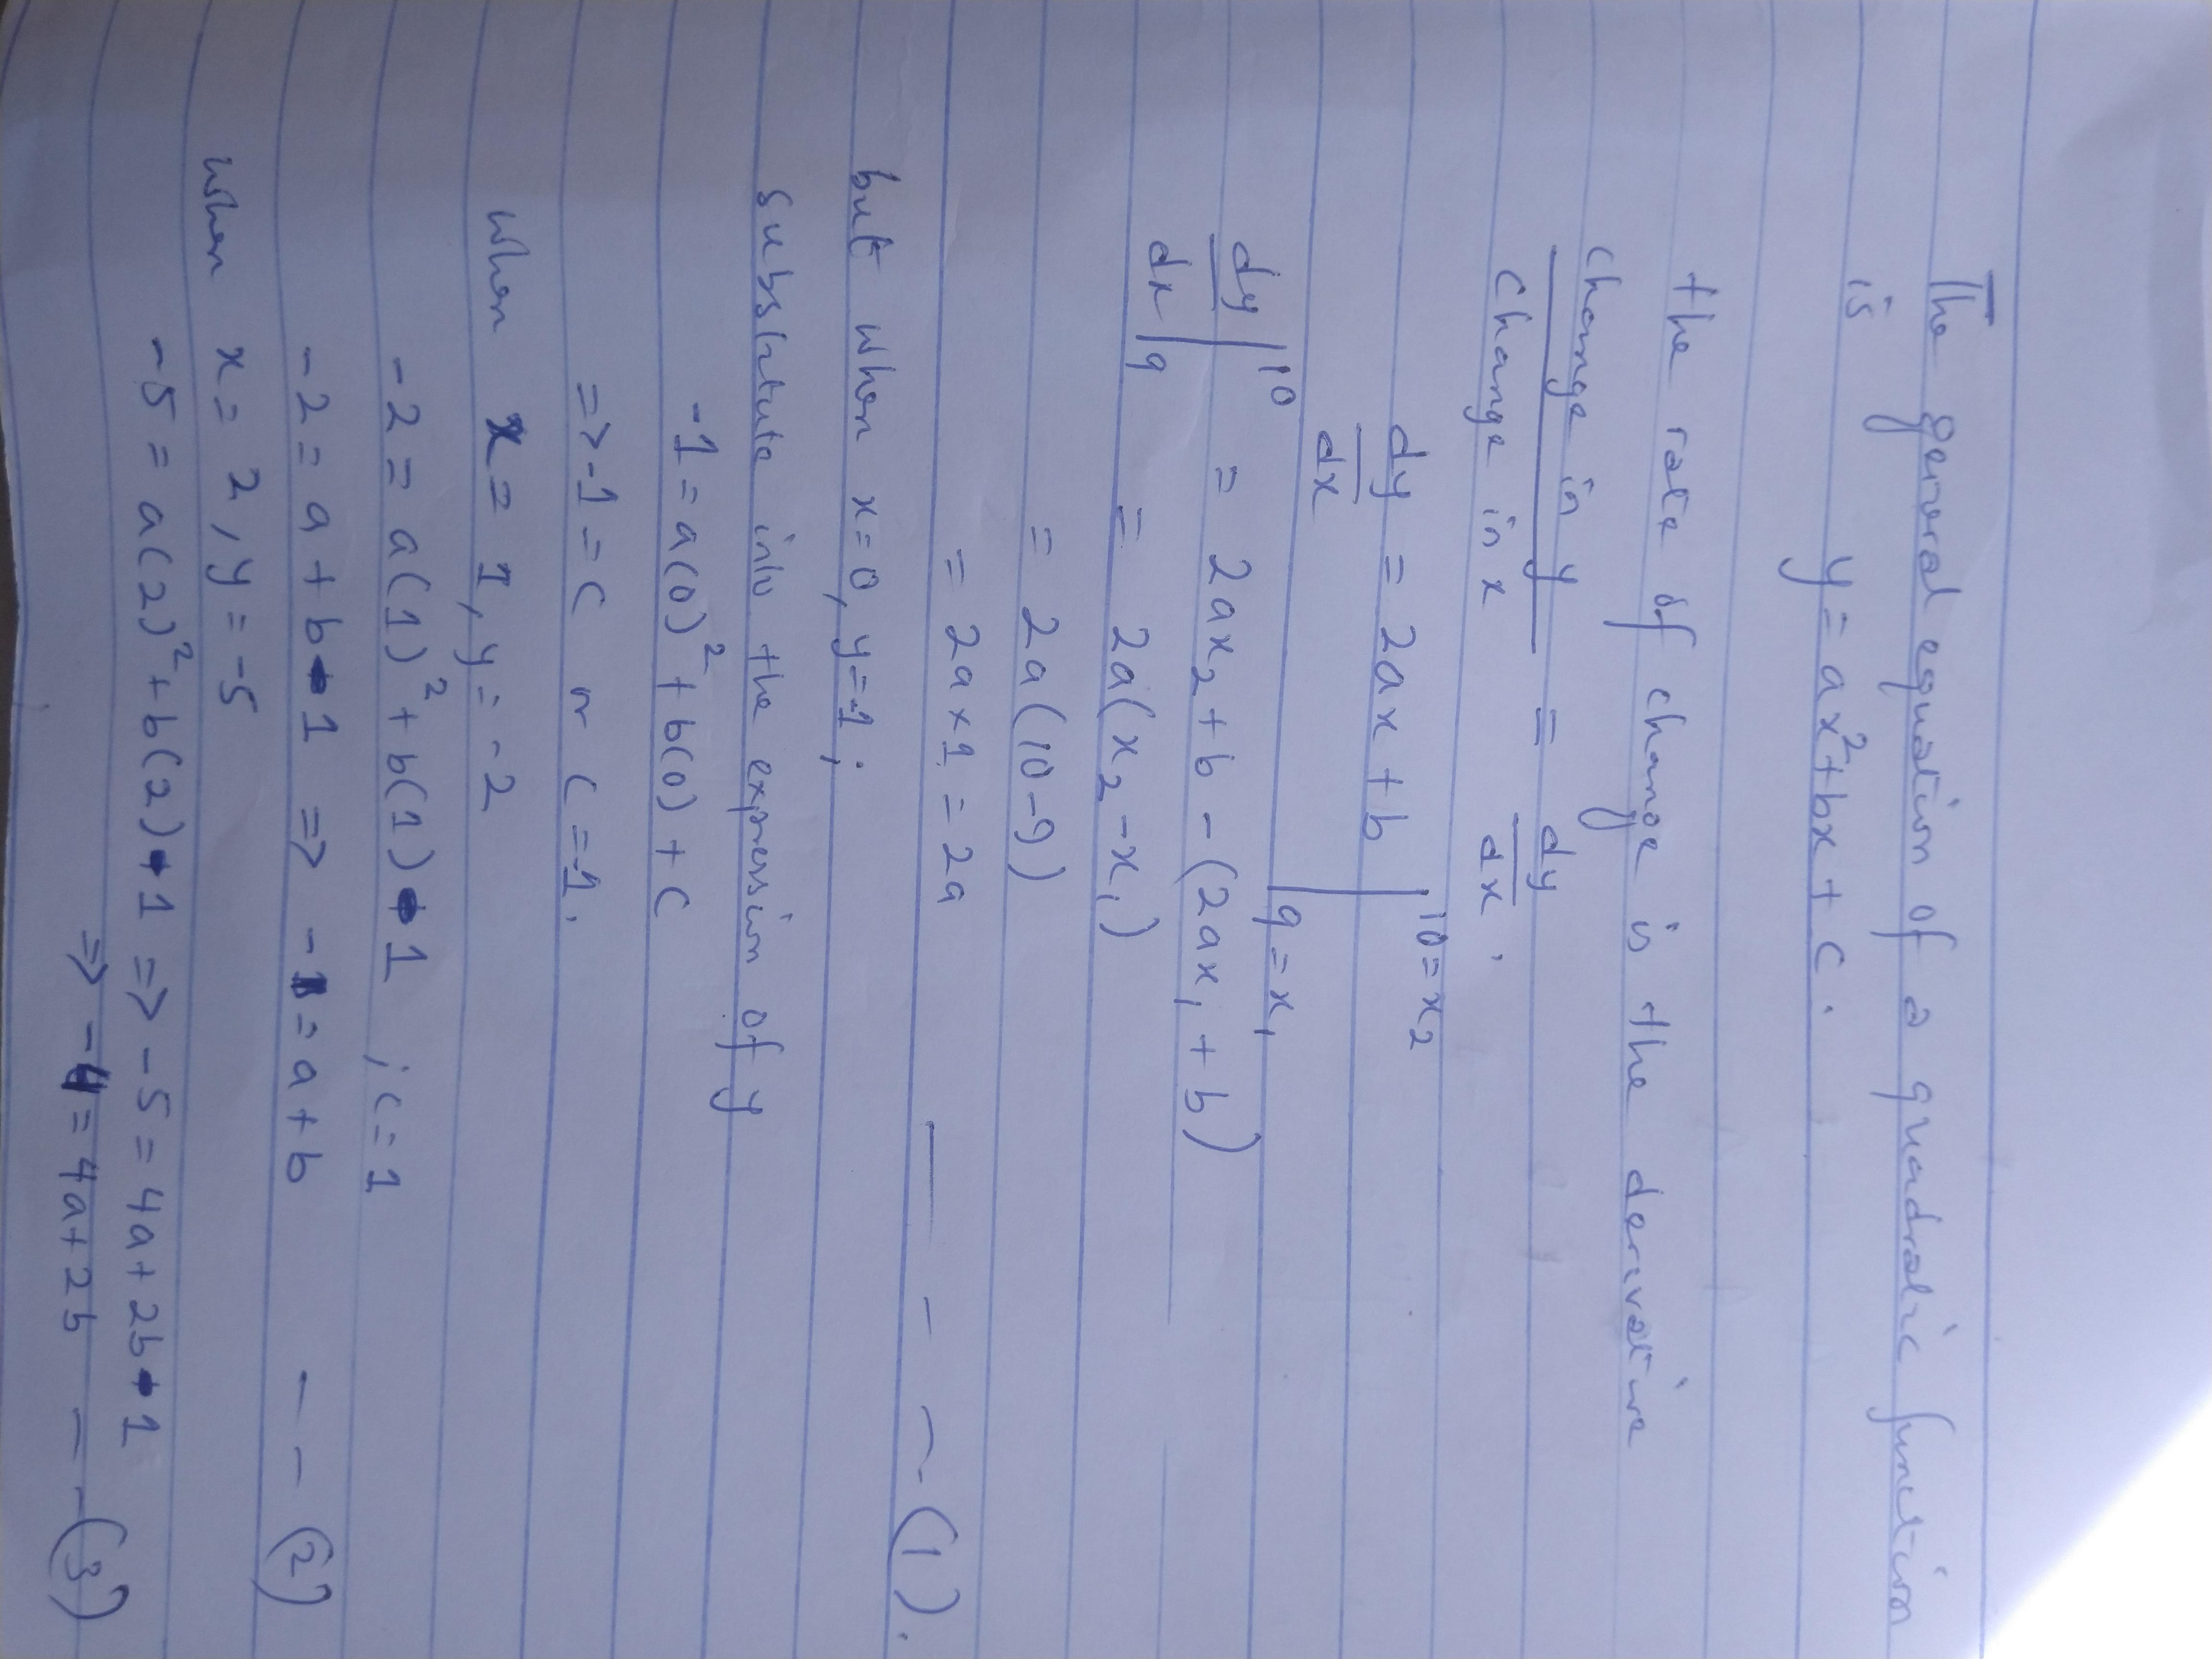 The general equation of a quadratic function
is y = ax² + bx + c.
the rate of change is the derivative
change in y / change in x = dy/dx,
dy/dx = 2ax + b |₉₌ₓ₁ ¹⁰⁼ˣ²
dy/dx |₉ ¹⁰ = 2ax₂ + b - (2ax₁ + b)
= 2a(x₂ - x₁)
= 2a(10-9)
= 2a × 1 = 2a - - - (1).
but when x=0, y=-1;
substitute into the expression of y
-1 = a(0)² + b(0) + c
=> -1 = c or c = -1.
when x = 1, y = -2
-2 = a(1)² + b(1) - 1 ; c = 1
-2 = a + b - 1 => -1 = a + b - - (2)
when x = 2, y = -5
-5 = a(2)² + b(2) - 1 => -5 = 4a + 2b - 1
=> -4 = 4a + 2b - - (3)